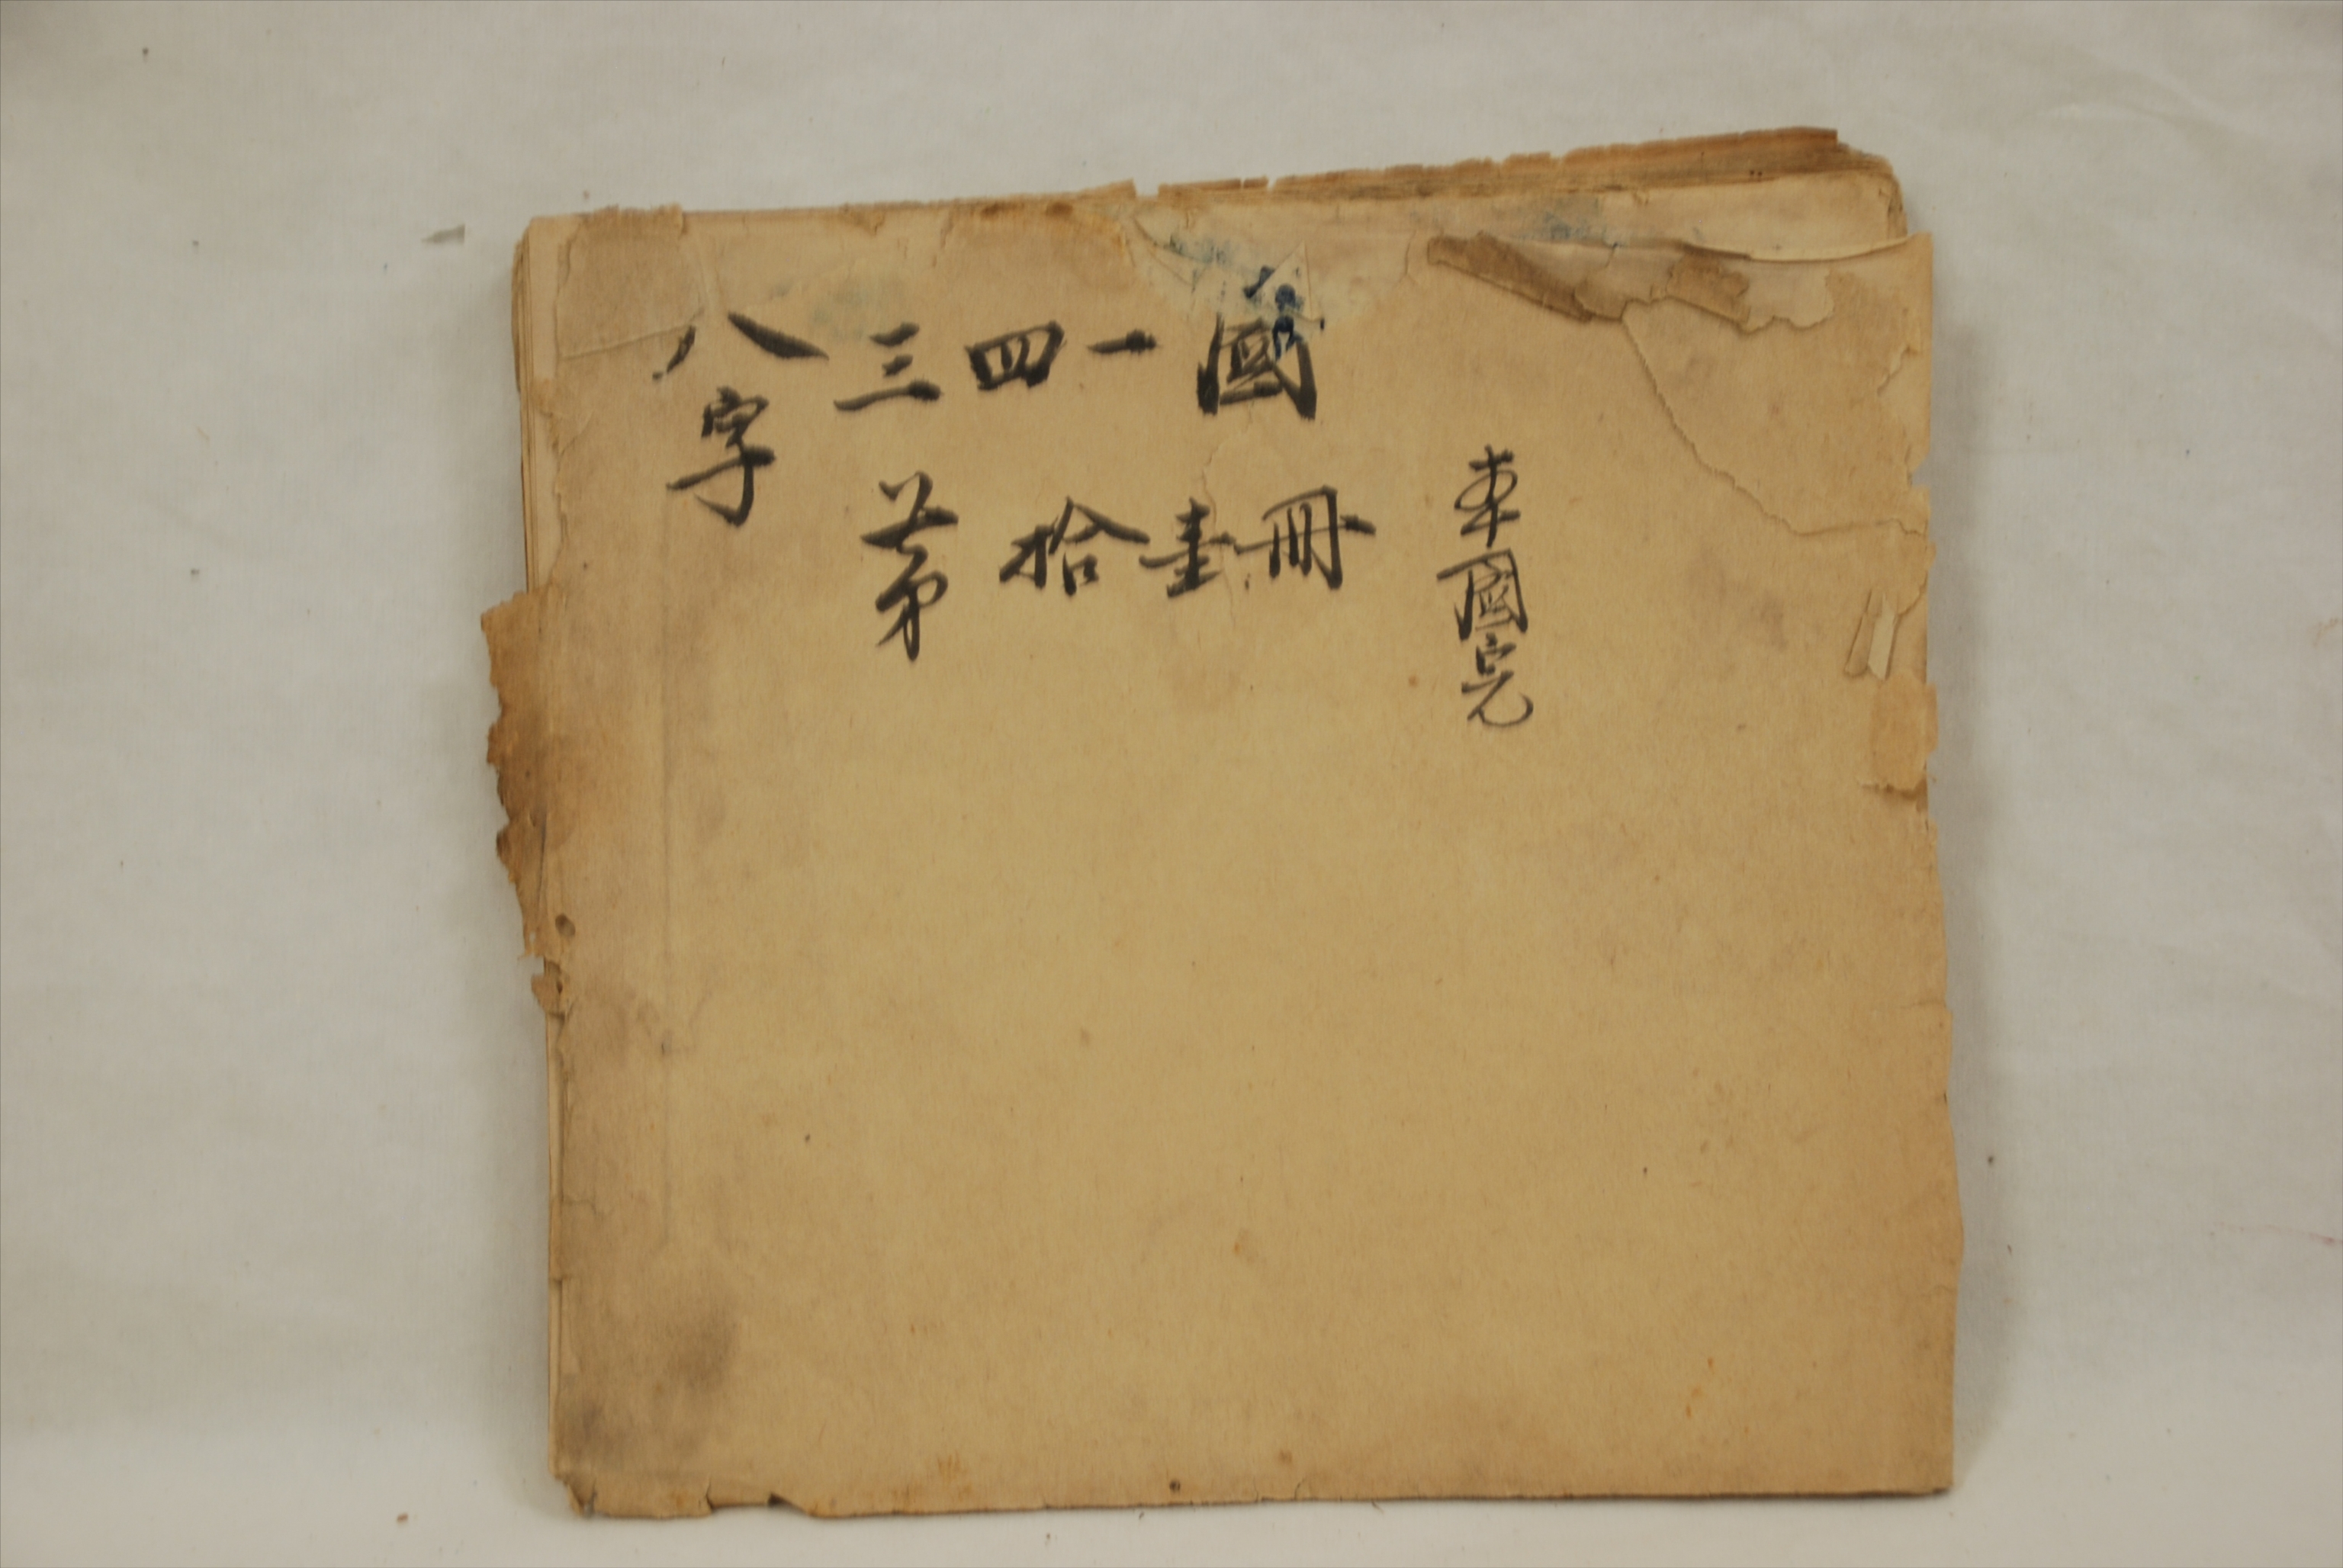 八字
三四一國
第拾壹冊
車國完